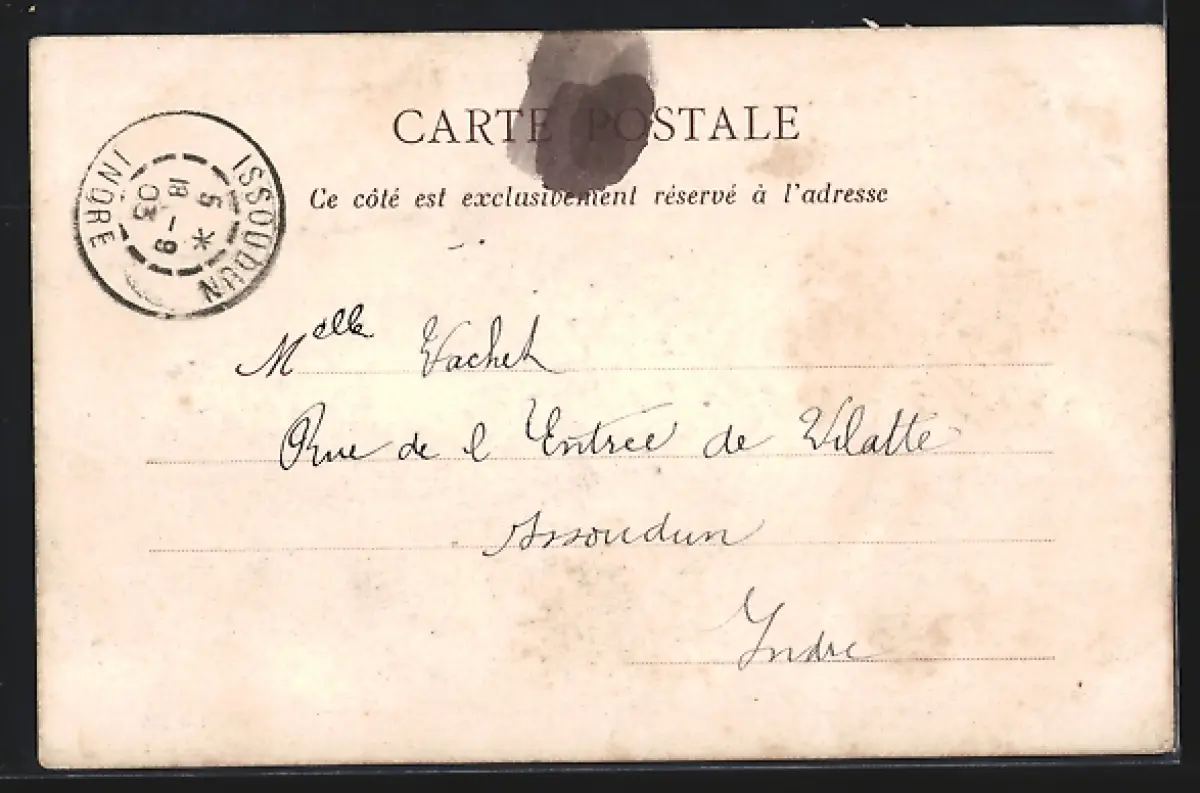 CARTE POSTALE
Ce côté est exclusivement réservé à l'adresse
ISSOUDUN
INDRE
5 *
18 - 9
03
Melle Vachet
Rue de l Entrée de Vilatte
Issoudun
Indre